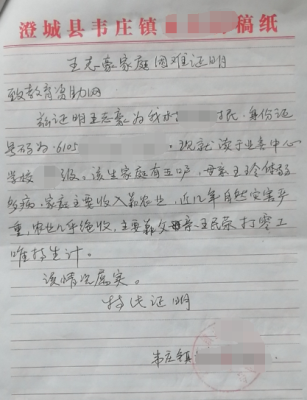 澄城县韦庄镇 稿纸
王志豪家庭困难证明
致教育资助网
兹证明王志豪为我 村民,身份证
号码为:6105 ,现就读于业善中心
学校 级。该生家庭有五口,母亲王 体弱
多病,家庭主要收入靠农业,近几年自然灾害严
重,农业几乎绝收,主要靠父亲王民荣打零工
唯持生计。
该情况属实。
特此证明
韦庄镇